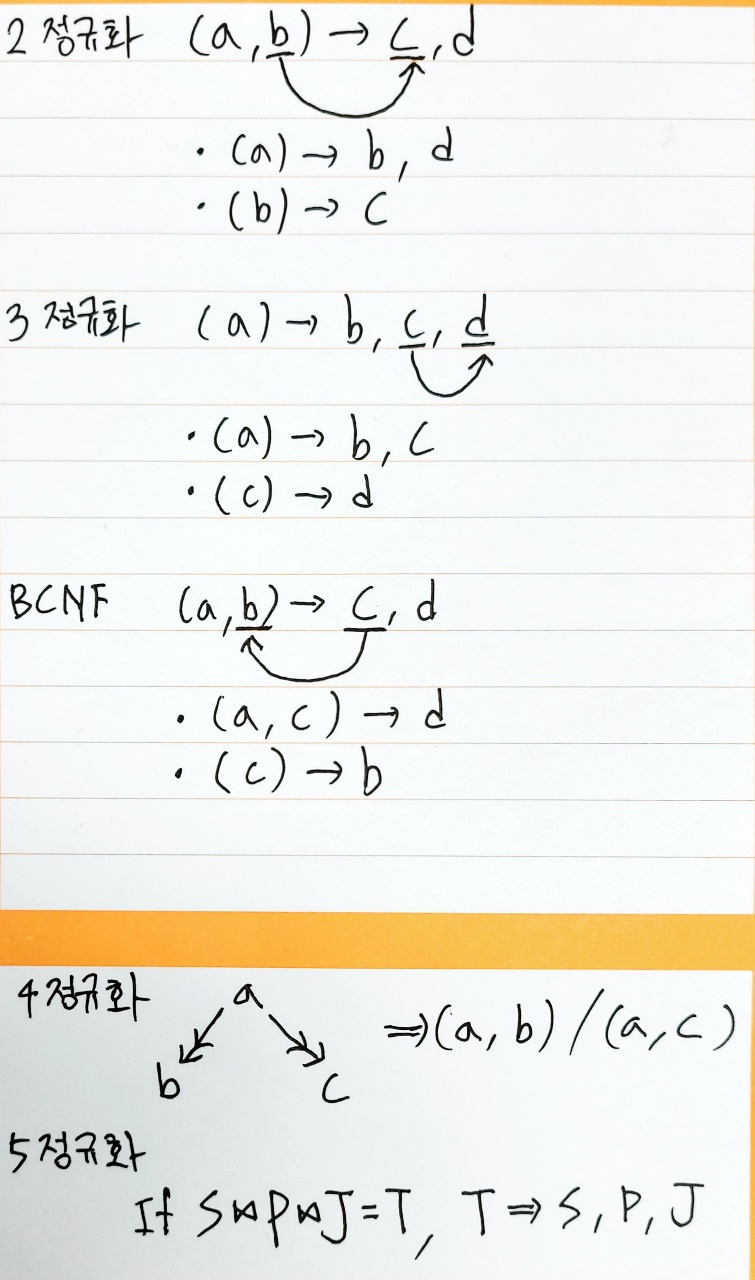 2 정규화 (a,b) → c, d
· (a) → b, d
· (b) → c
3 정규화 (a) → b, c, d
· (a) → b, c
· (c) → d
BCNF (a,b) → c, d
· (a, c) → d
· (c) → b
4 정규화 a ⇒ (a, b) / (a, c)
b c
5 정규화
If S⋈P⋈J=T, T ⇒ S, P, J